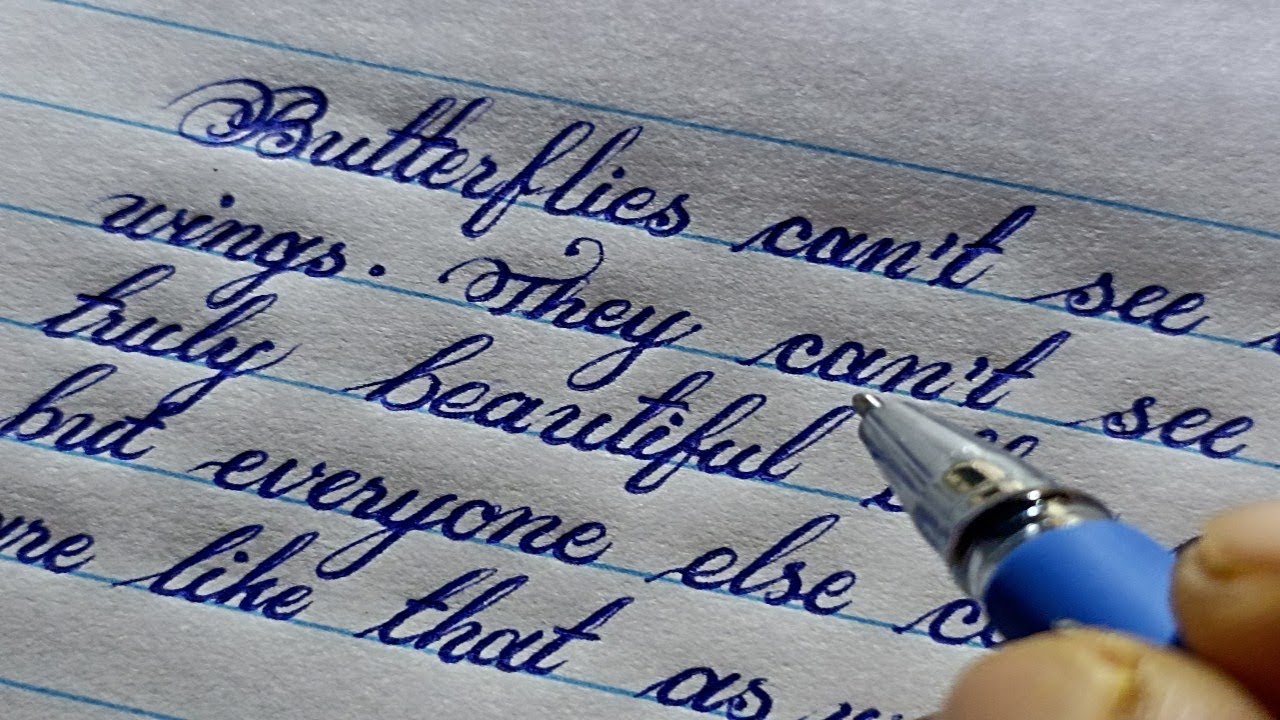 Butterflies can't see
wings. They can't see
truly beautiful
but everyone else
like that as